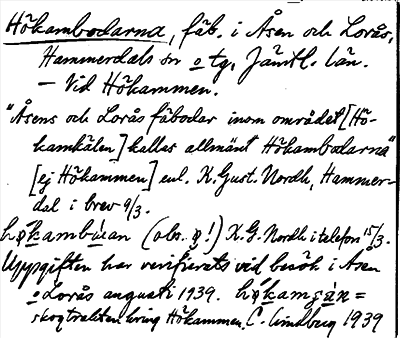 Hökambodarna, fäb. i Åsen och Lorås,
Hammerdals sn o tg, Jämtl. län.
— Vid Hökammen.
"Åsens och Lorås fäbodar inom området [Hö-
kamkälen] kallas allmänt Hökambodarna"
[ej Hökammen] enl. K. Gust. Nordh, Hammer-
dal i brev 9/3.
(obs. ø!) K. G. Nordh i telefon 15/3.
Uppgiften har verifierats vid besök i Åsen
o Lorås augusti 1939. =
skogtrakten kring Hökammen. C. Lindberg 1939